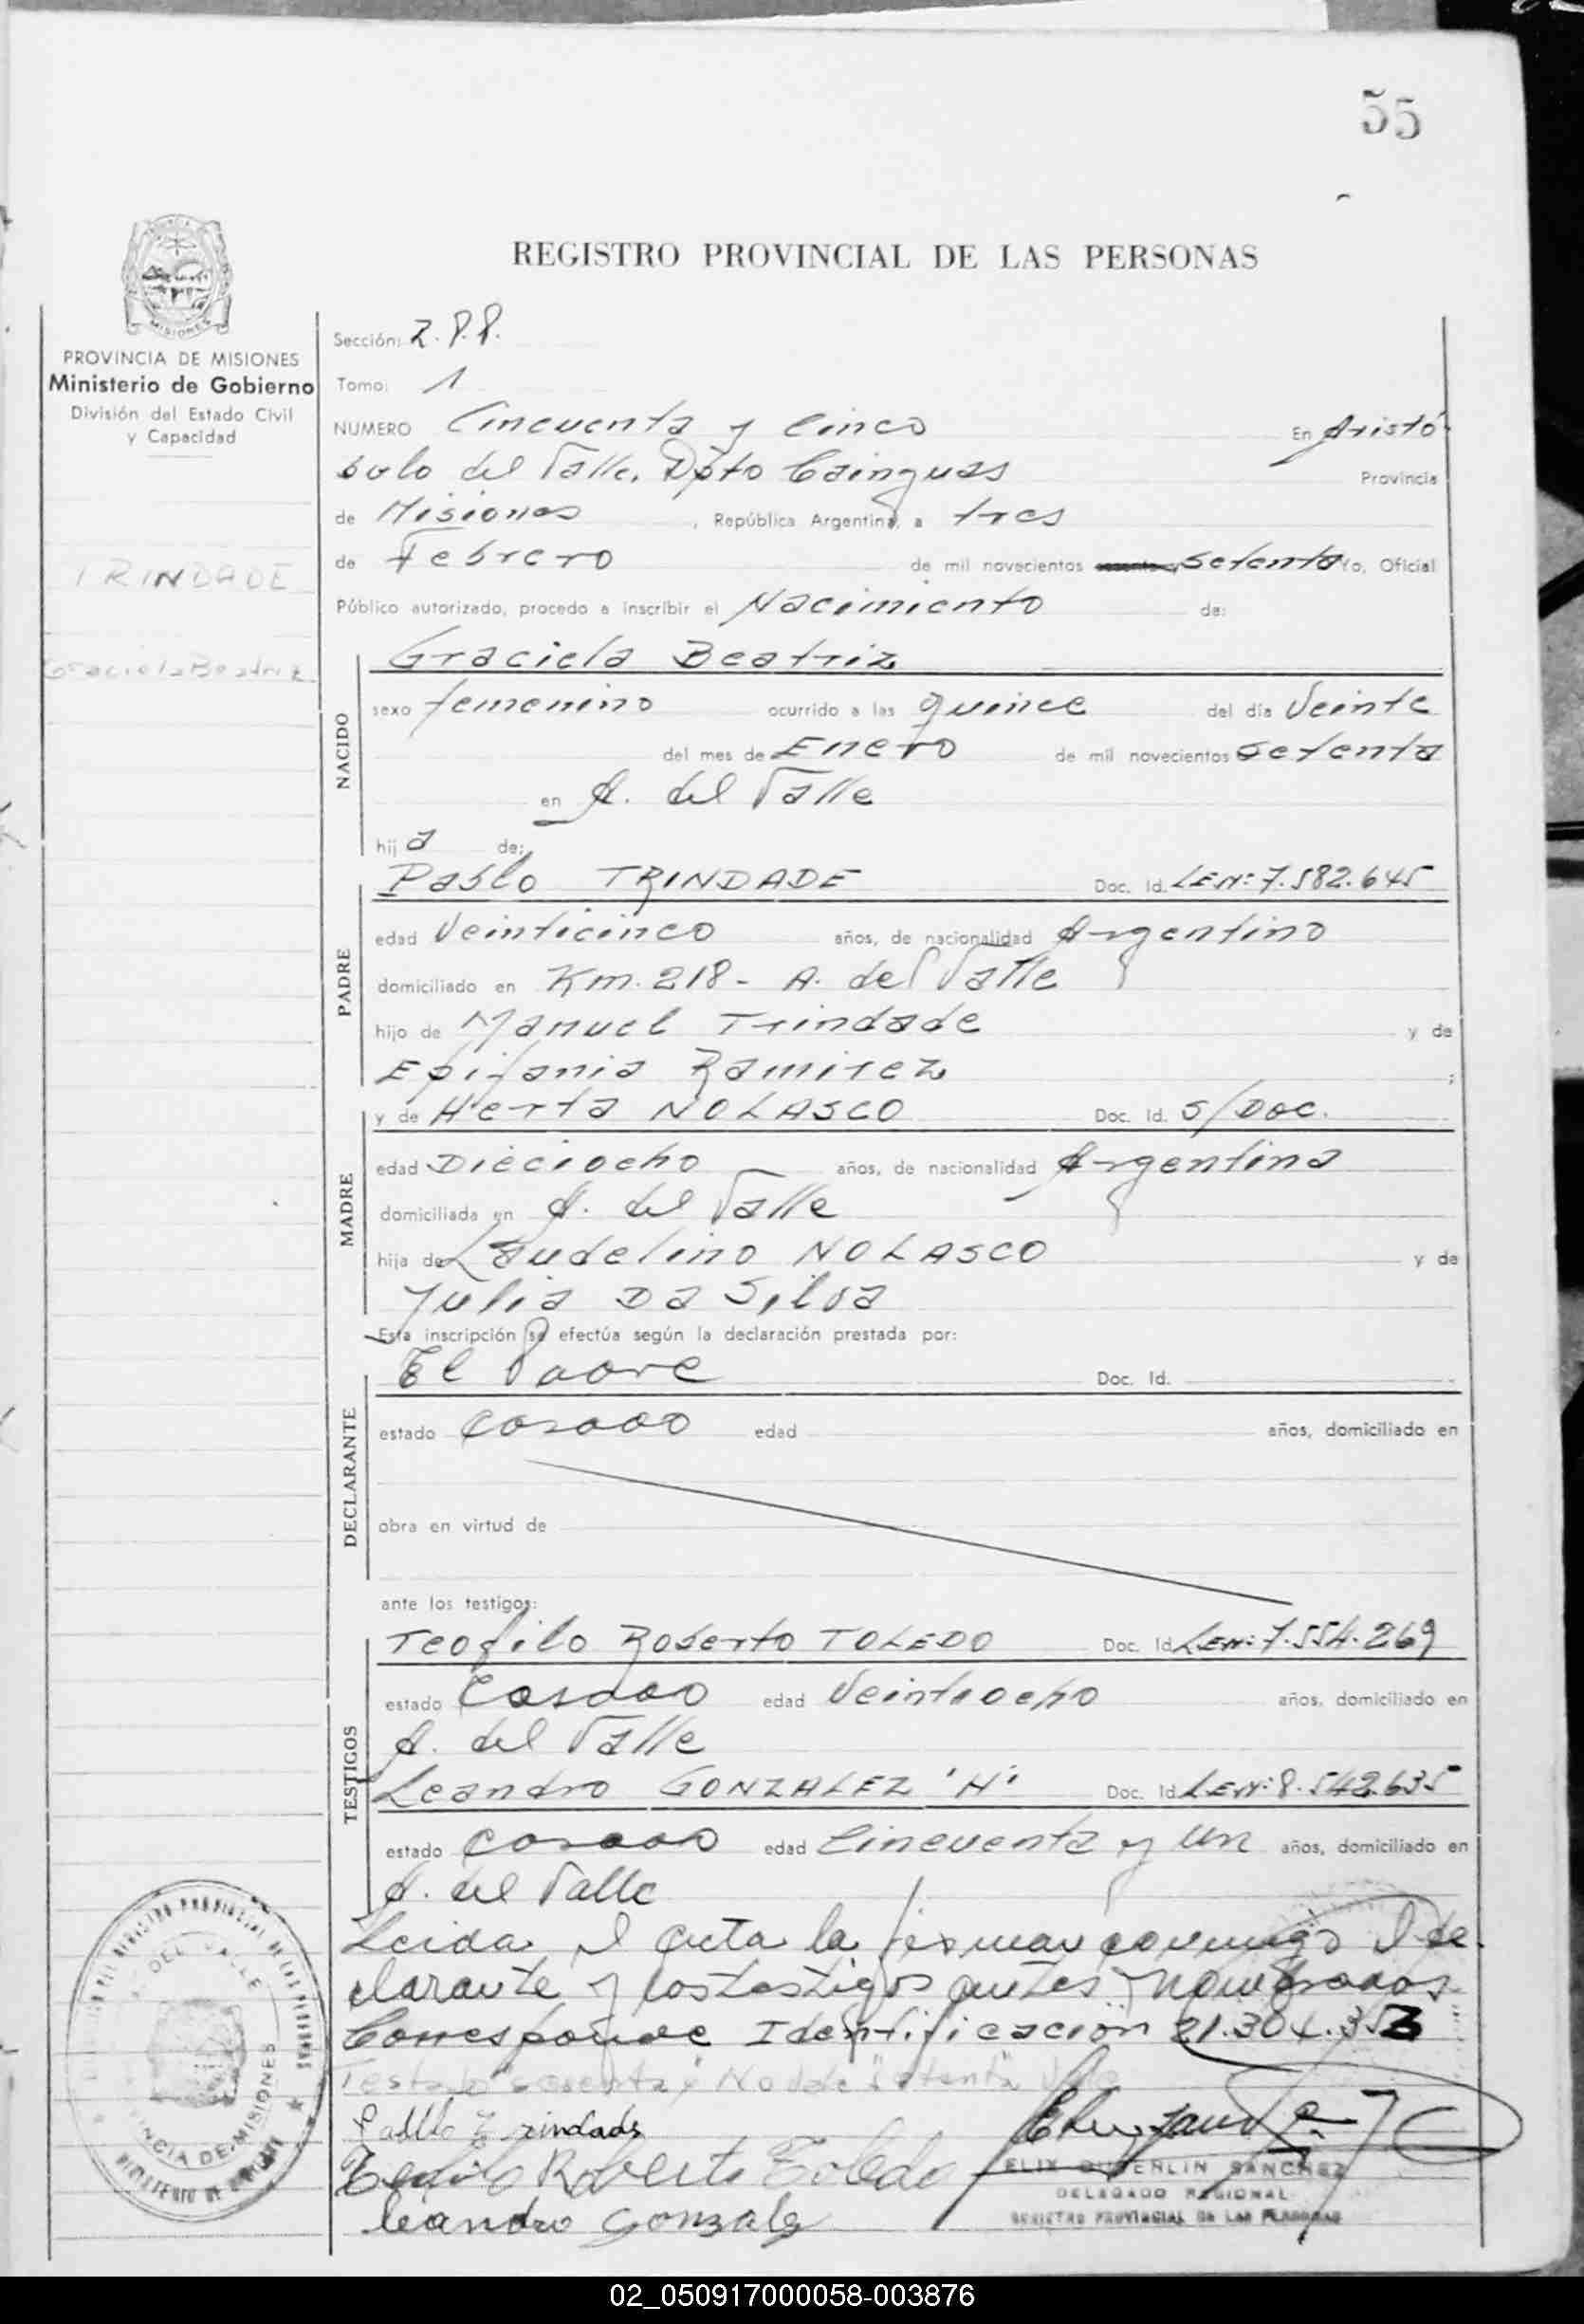 55
REGISTRO PROVINCIAL DE LAS PERSONAS
MISIONES
PROVINCIA DE MISIONES
Ministerio de Gobierno
División del Estado Civil
y Capacidad
TRINDADE
Graciela Beatriz
Sección:
Tomo: 1
NUMERO Cincuenta y Cinco En Aristó-
bulo del Valle, Dpto Cainguas Provincia
de Misiones, República Argentina, a tres
de Febrero de mil novecientos sesenta y setenta Yo, Oficial
Público autorizado, procedo a inscribir el Nacimiento de:
NACIDO
Graciela Beatriz
sexo femenino ocurrido a las quince del día Veinte
del mes de Enero de mil novecientos setenta
en A. del Valle
hija de:
PADRE
Pablo TRINDADE Doc. Id. LEN: 7.582.645
edad Veinticinco años, de nacionalidad Argentino
domiciliado en Km. 218 - A. del Valle
hijo de Manuel Trindade y de
Epifania Ramirez ;
MADRE
y de Herta NOLASCO Doc. Id. S/Doc.
edad Dieciocho años, de nacionalidad Argentina
domiciliada en A. del Valle
hija de Laudelino NOLASCO y de
Julia Da Silva
Esta inscripción se efectúa según la declaración prestada por:
DECLARANTE
El Padre Doc. Id.
estado Casado edad años, domiciliado en
obra en virtud de
ante los testigos:
TESTIGOS
Teofilo Roberto TOLEDO Doc. Id. LEN: 7.554.269
estado Casado edad Veintiocho años, domiciliado en
A. del Valle
Leandro GONZALEZ "H" Doc. Id. LEN: 8.542.635
estado Casado edad Cincuenta y un años, domiciliado en
A. del Valle
Leida el Acta la firman conmigo el de-
clarante y los testigos antes nombrados.
Corresponde Identificación 21.304.353
Testado "sesenta y" No vale "setenta" Vale
Pablo Trindade
Teofilo Roberto Toledo
Leandro Gonzalez
SANCHEZ
DELEGADO REGIONAL
REGISTRO PROVINCIAL DE LAS PERSONAS
REGISTRO PROVINCIAL DE LAS PERSONAS
DEL VALLE
PROVINCIA DE MISIONES
MINISTERIO DE GOBIERNO
02_050917000058-003876